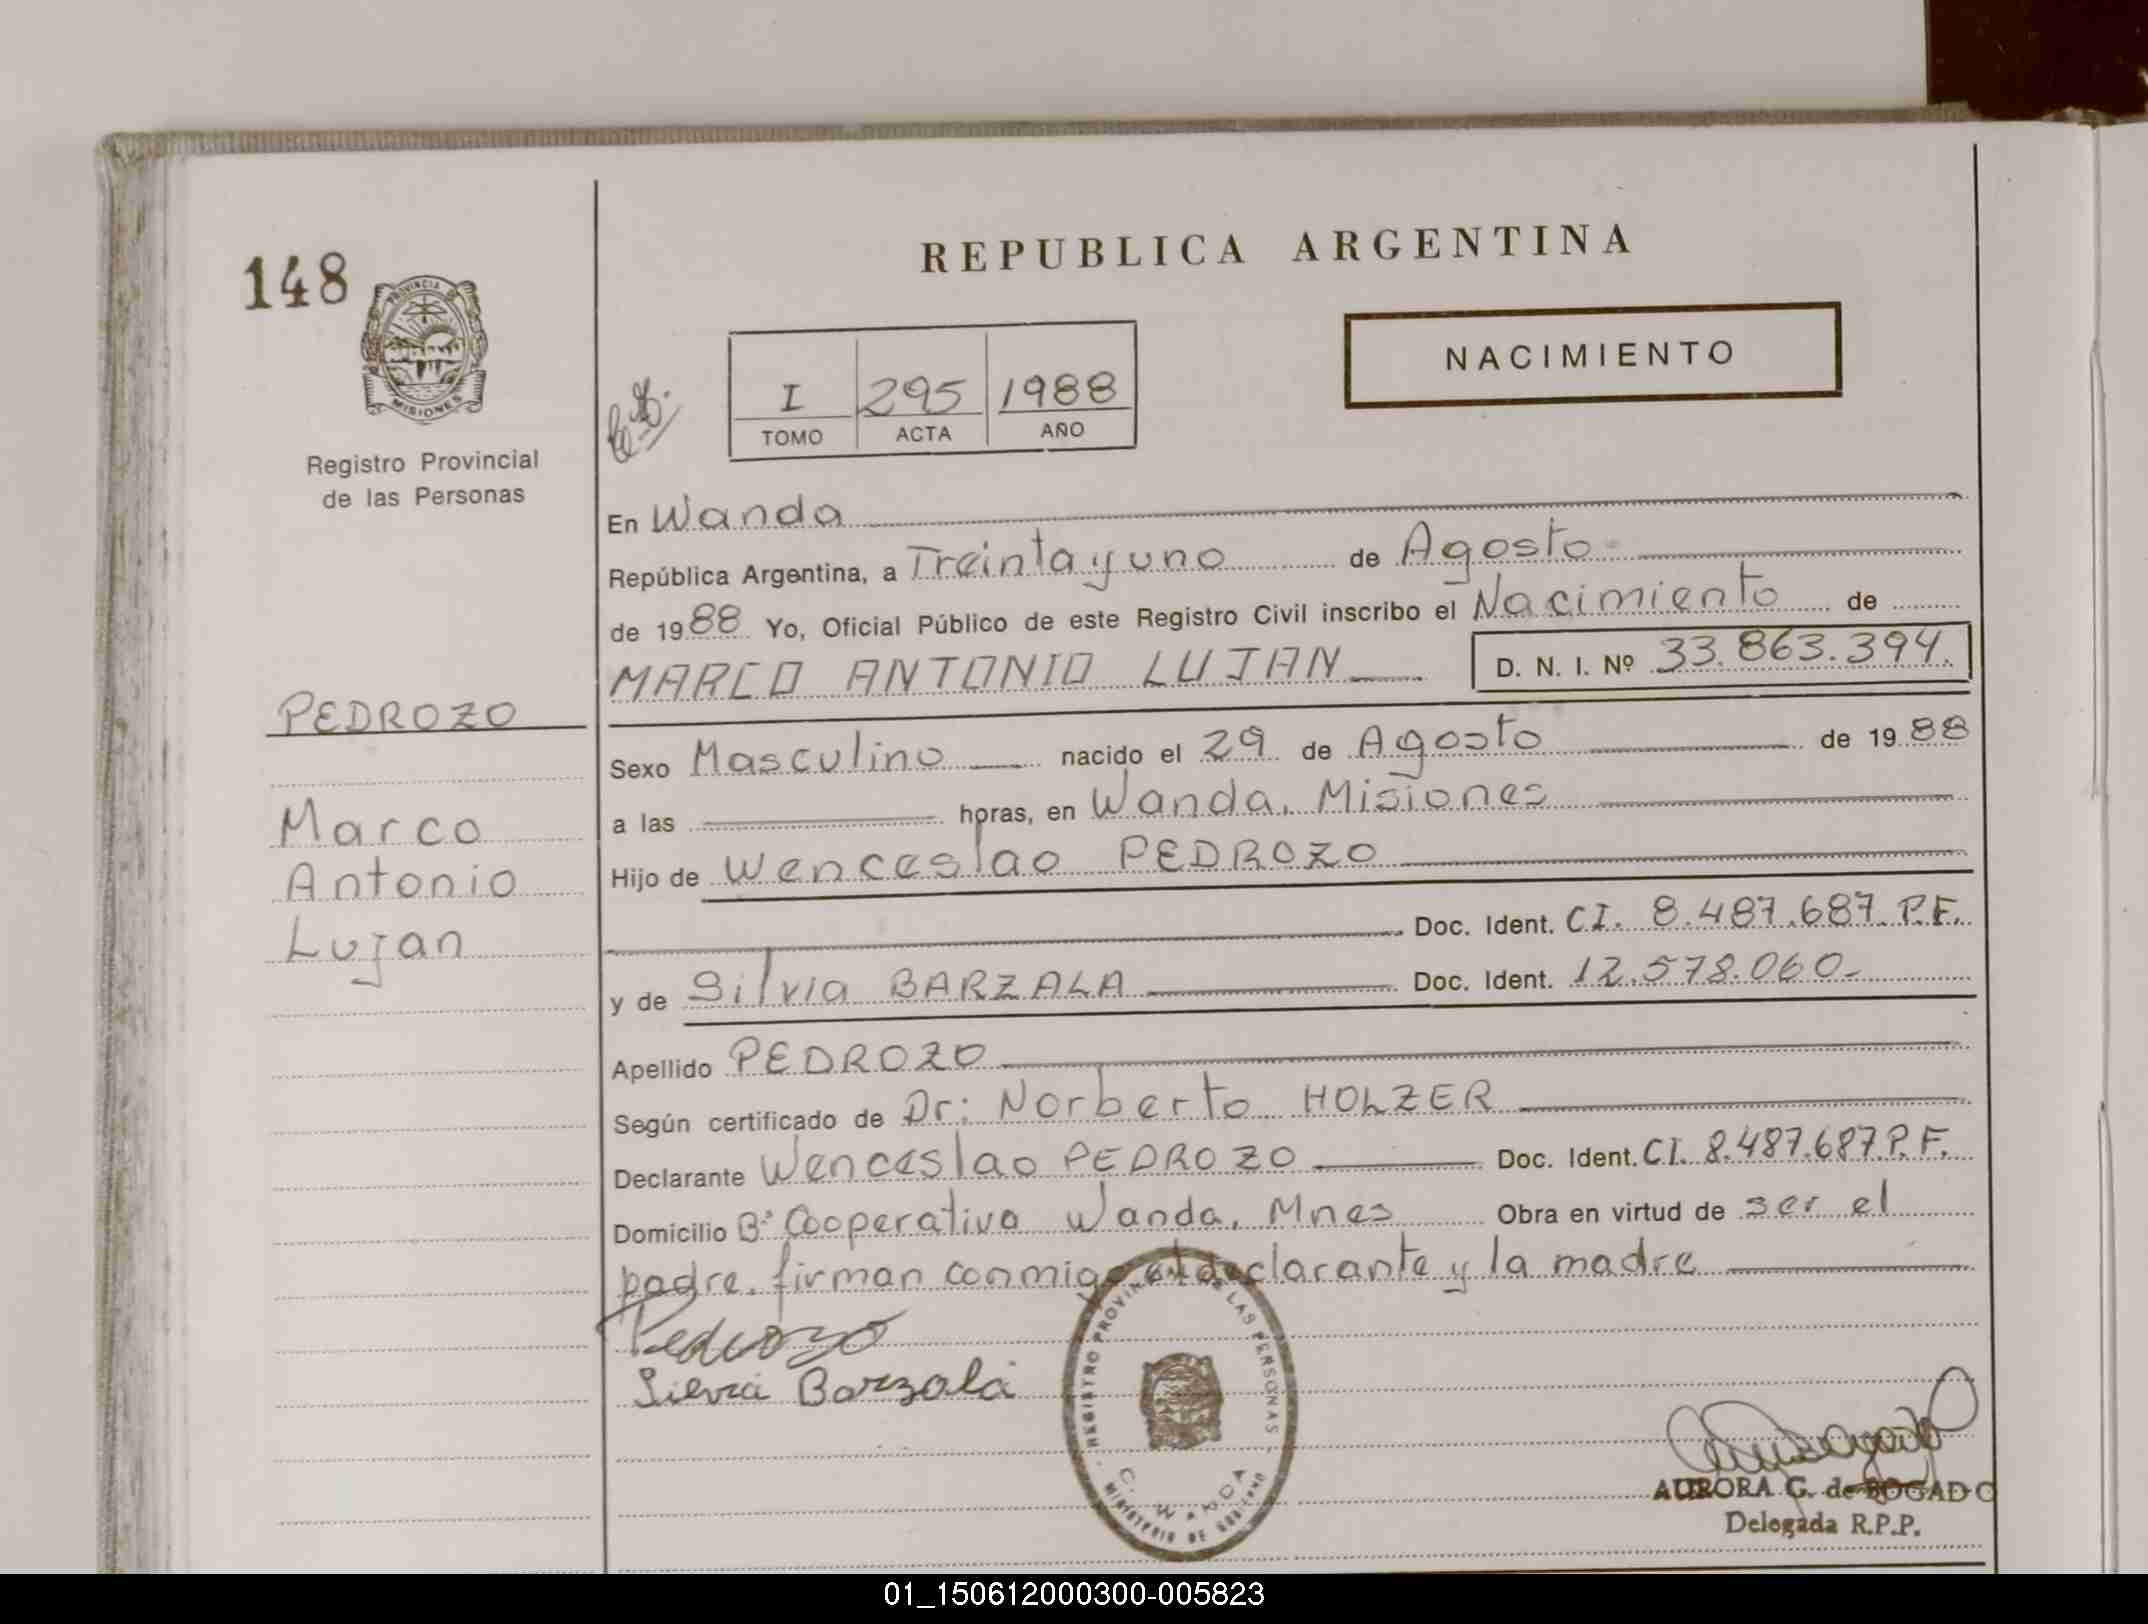 REPUBLICA ARGENTINA
148
PROVINCIA DE
MISIONES
Registro Provincial
de las Personas
NACIMIENTO
I 295 1988
TOMO ACTA AÑO
En Wanda
República Argentina, a Treinta y uno de Agosto
de 1988 Yo, Oficial Público de este Registro Civil inscribo el Nacimiento de
MARCO ANTONIO LUJAN D. N. I. Nº 33.863.394.
PEDROZO
Marco
Antonio
Lujan
Sexo Masculino nacido el 29 de Agosto de 1988
a las horas, en Wanda, Misiones
Hijo de Wenceslao PEDROZO
Doc. Ident. CI. 8.487.687 P.F.
y de Silvia BARZALA Doc. Ident. 12.578.060-
Apellido PEDROZO
Según certificado de Dr: Norberto HOLZER
Declarante Wenceslao PEDROZO Doc. Ident. CI. 8.487.687 P.F.
Domicilio Bº Cooperativa Wanda, Mnes Obra en virtud de ser el
padre. firman conmigo el declarante y la madre
Pedrozo
Silvia Barzala
REGISTRO PROVINCIAL DE LAS PERSONAS
WANDA
MINISTERIO DE GOBIERNO
AURORA G. de BOGADO
Delegada R.P.P.
01_150612000300-005823